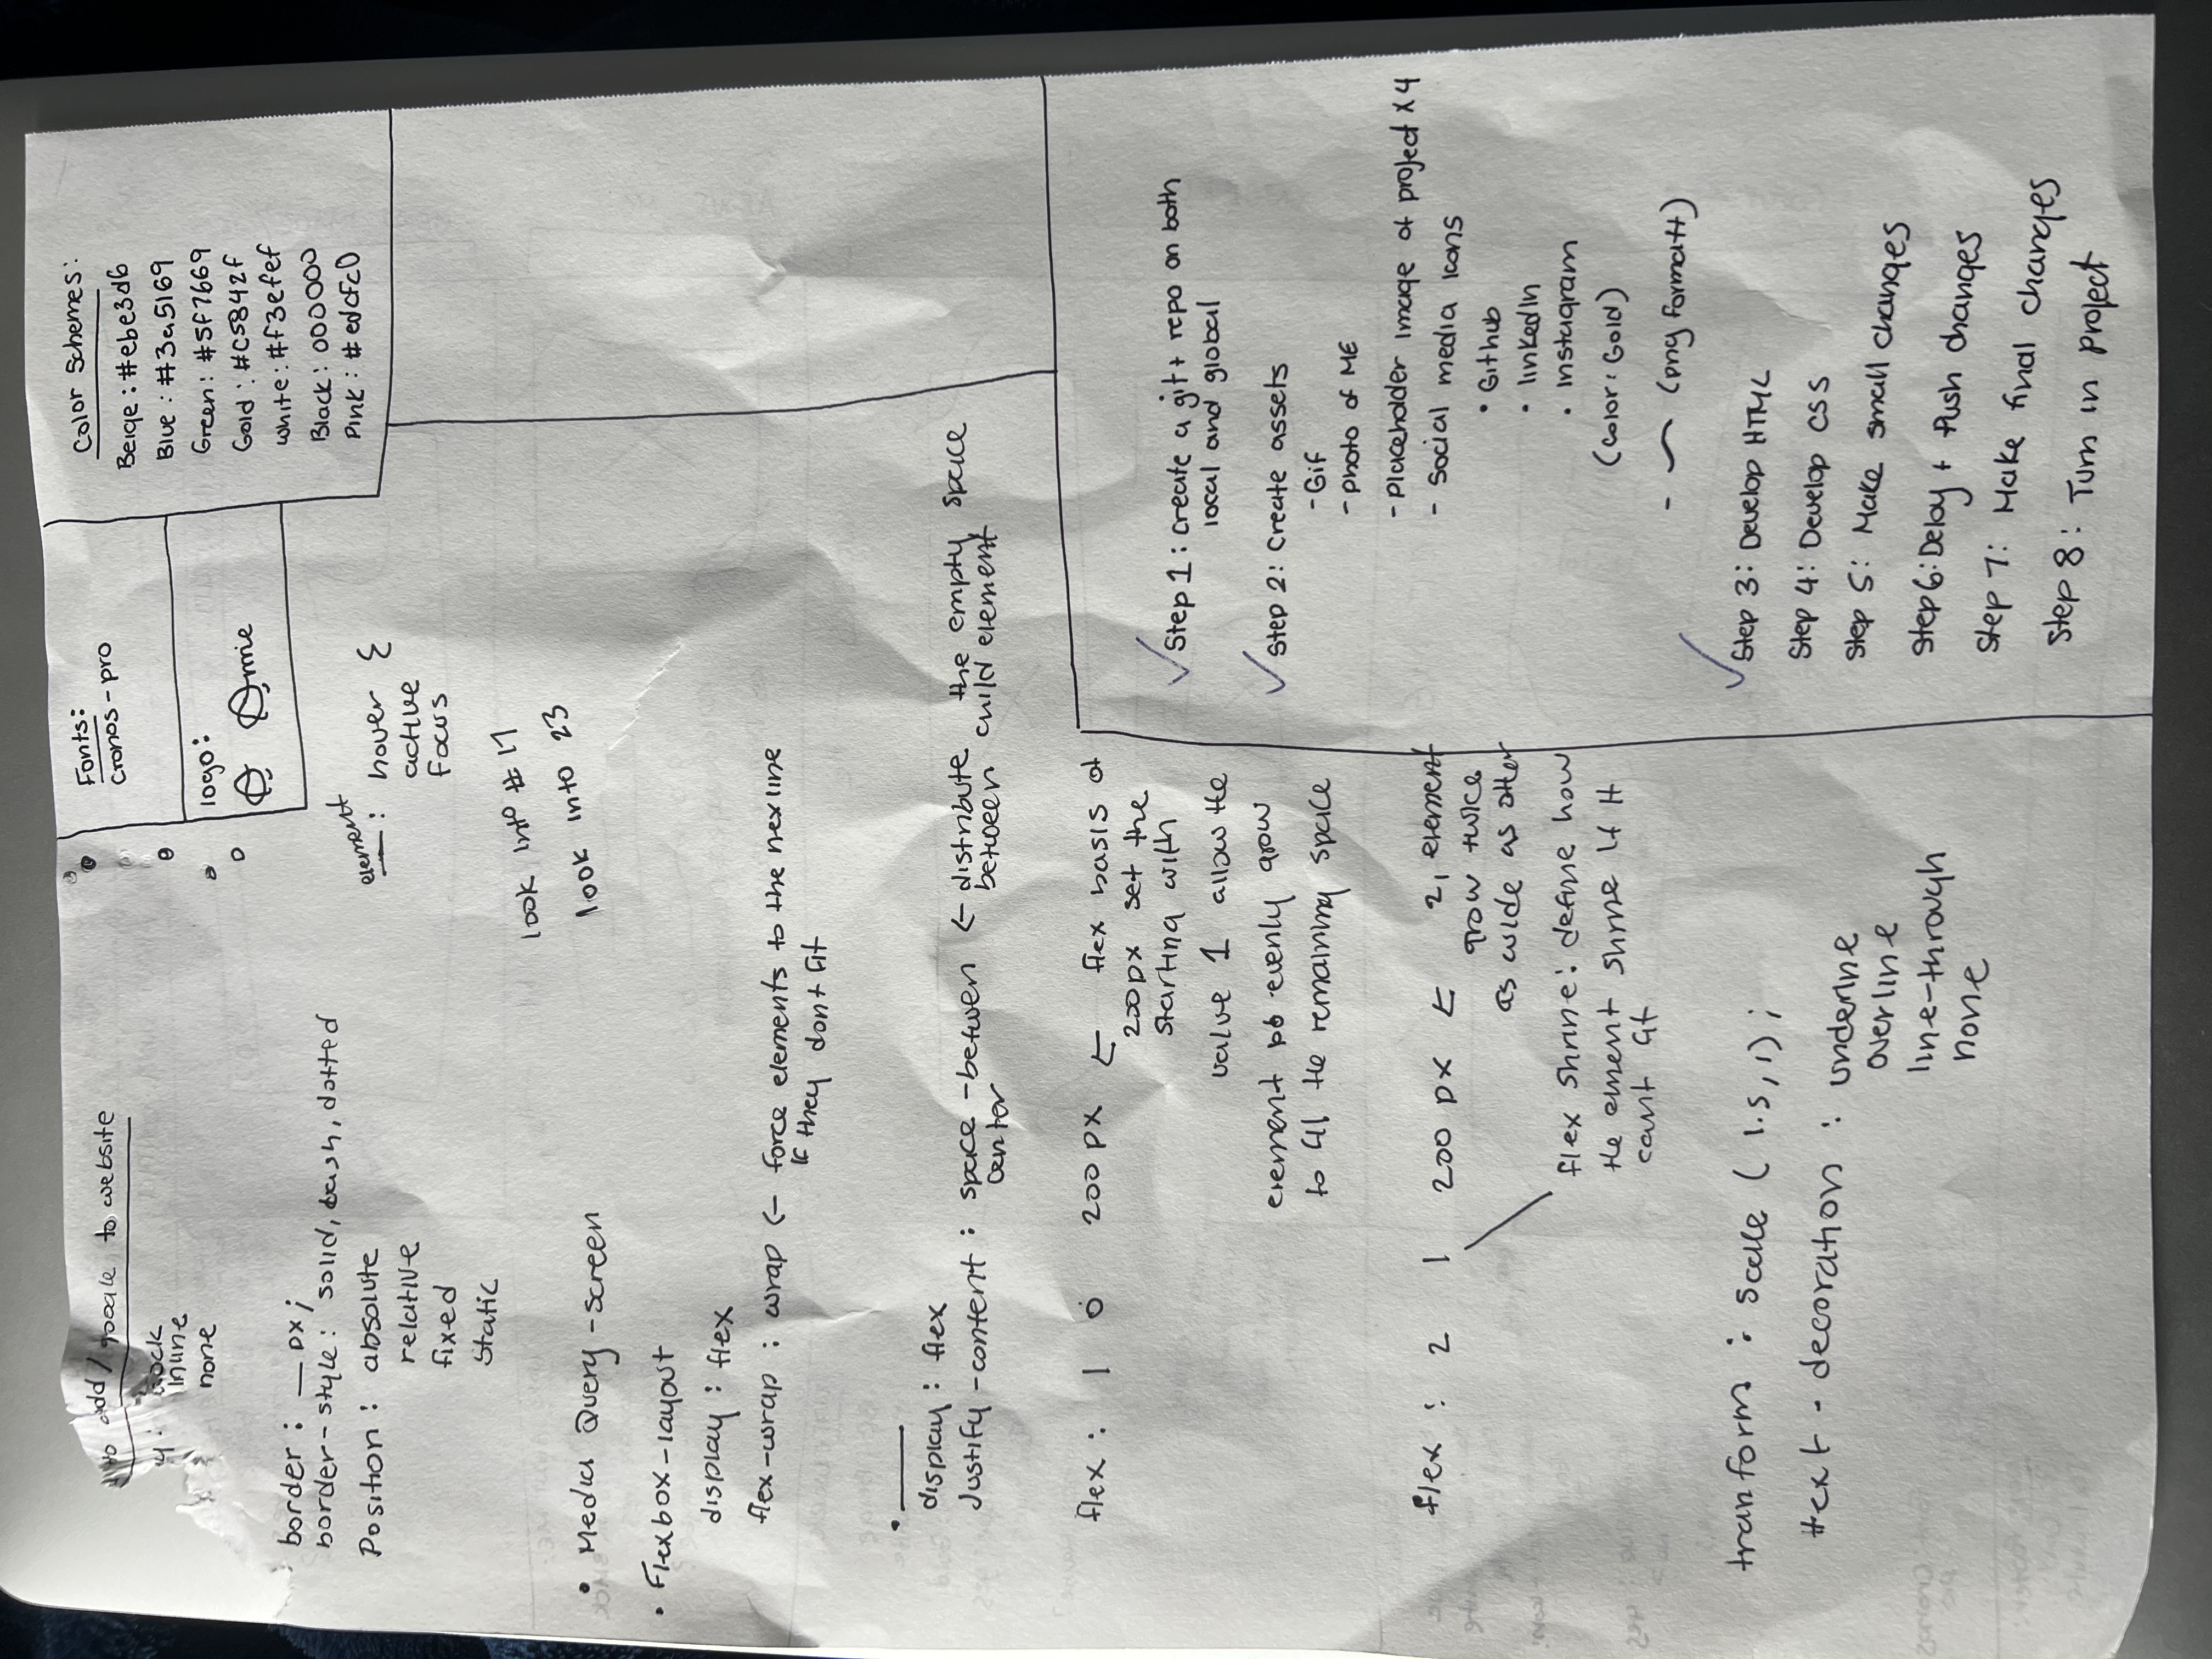 to add / google to website
inline
none
border : __ px ;
border-style : solid, dash, dotted
Position : absolute
relative
fixed
static
• Media Query - screen
• Flexbox - layout
display : flex
flex-wrap : wrap ← force elements to the nex line
if they dont fit
• ____
display : flex
Justify-content : space-betwen ← distribute the empty space
center between child element
flex : 1 0 200 px ← flex basis of
200px set the
starting with
value 1 allow the
element to evenly grow
to fill the remaining space
flex : 2 1 200 px ← 2, element
grow twice
as wide as other
flex shrine : define how
the ement shrine if it
cant fit
tranform : scale ( 1.5, 1) ;
text - decoration : underline
overline
line-through
none
element
__ : hover {
active
focus
look into # 17
look into 23
Fonts:
cronos-pro
logo:
Amie
Color Schemes:
Beige : #ebe3d6
Blue : #3a5169
Green : #5f7669
Gold : #C5842f
white : #f3efef
Black : 000000
Pink : #edcfc0
✓ Step 1 : create a git + repo on both
local and global
✓ Step 2 : Create assets
- Gif
- photo of ME
- placeholder image of project x 4
- social media icons
• Github
• linkedIn
• Instagram
(color : Gold)
- (png formatt)
✓ Step 3 : Develop HTML
Step 4 : Develop CSS
Step 5 : Make small changes
Step 6 : Deloy + Push changes
Step 7 : Make final changes
Step 8 : Turn in project